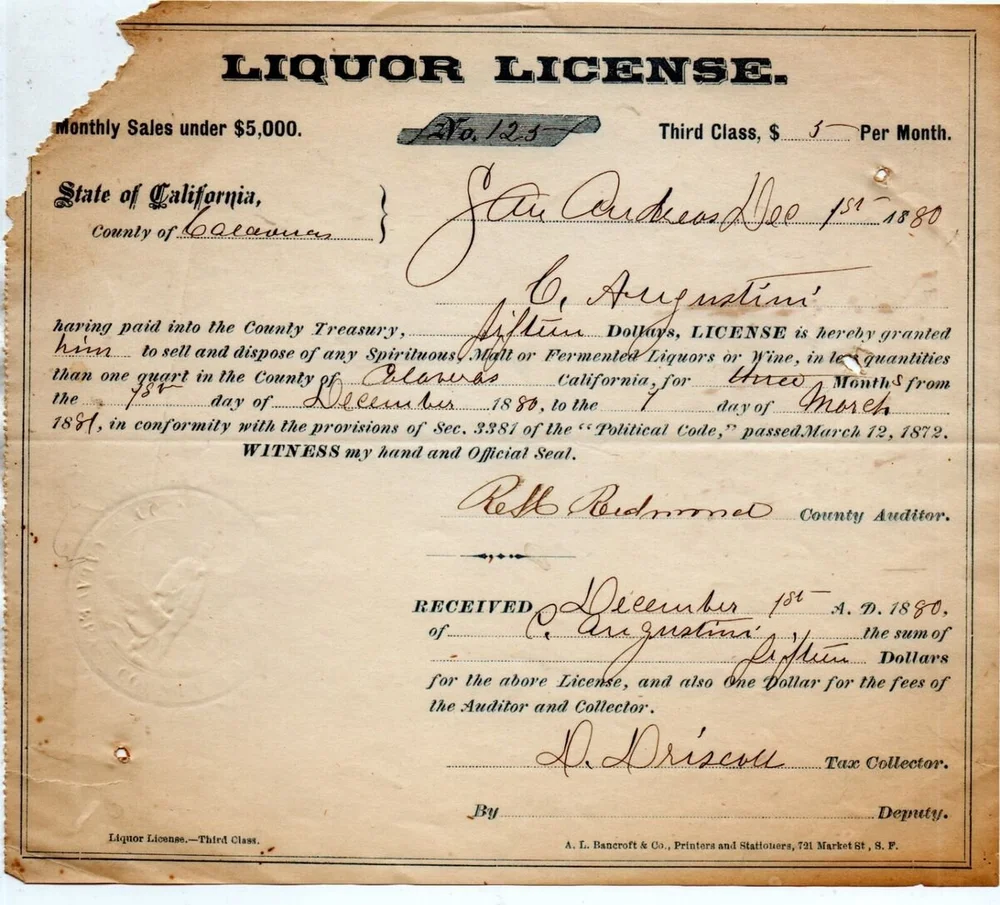 LIQUOR LICENSE.
Monthly Sales under $5,000. No. 125 Third Class, $ 5 Per Month.
State of California,
County of Calaveras
San Andreas Dec 1st 1880
C. Augustini
having paid into the County Treasury, fifteen Dollars, LICENSE is hereby granted
him to sell and dispose of any Spirituous, Malt or Fermented Liquors or Wine, in less quantities
than one quart in the County of Calaveras California, for three Months from
the 1st day of December 1880, to the 1 day of March
1881, in conformity with the provisions of Sec. 3381 of the “Political Code,” passed March 12, 1872.
WITNESS my hand and Official Seal.
Redmond County Auditor.
RECEIVED, December 1st A. D. 1880,
of C. Augustini, the sum of
fifteen Dollars
for the above License, and also One Dollar for the fees of
the Auditor and Collector.
D. Driscoll Tax Collector.
By Deputy.
Liquor License.—Third Class.
A. L. Bancroft & Co., Printers and Stationers, 721 Market St, S. F.